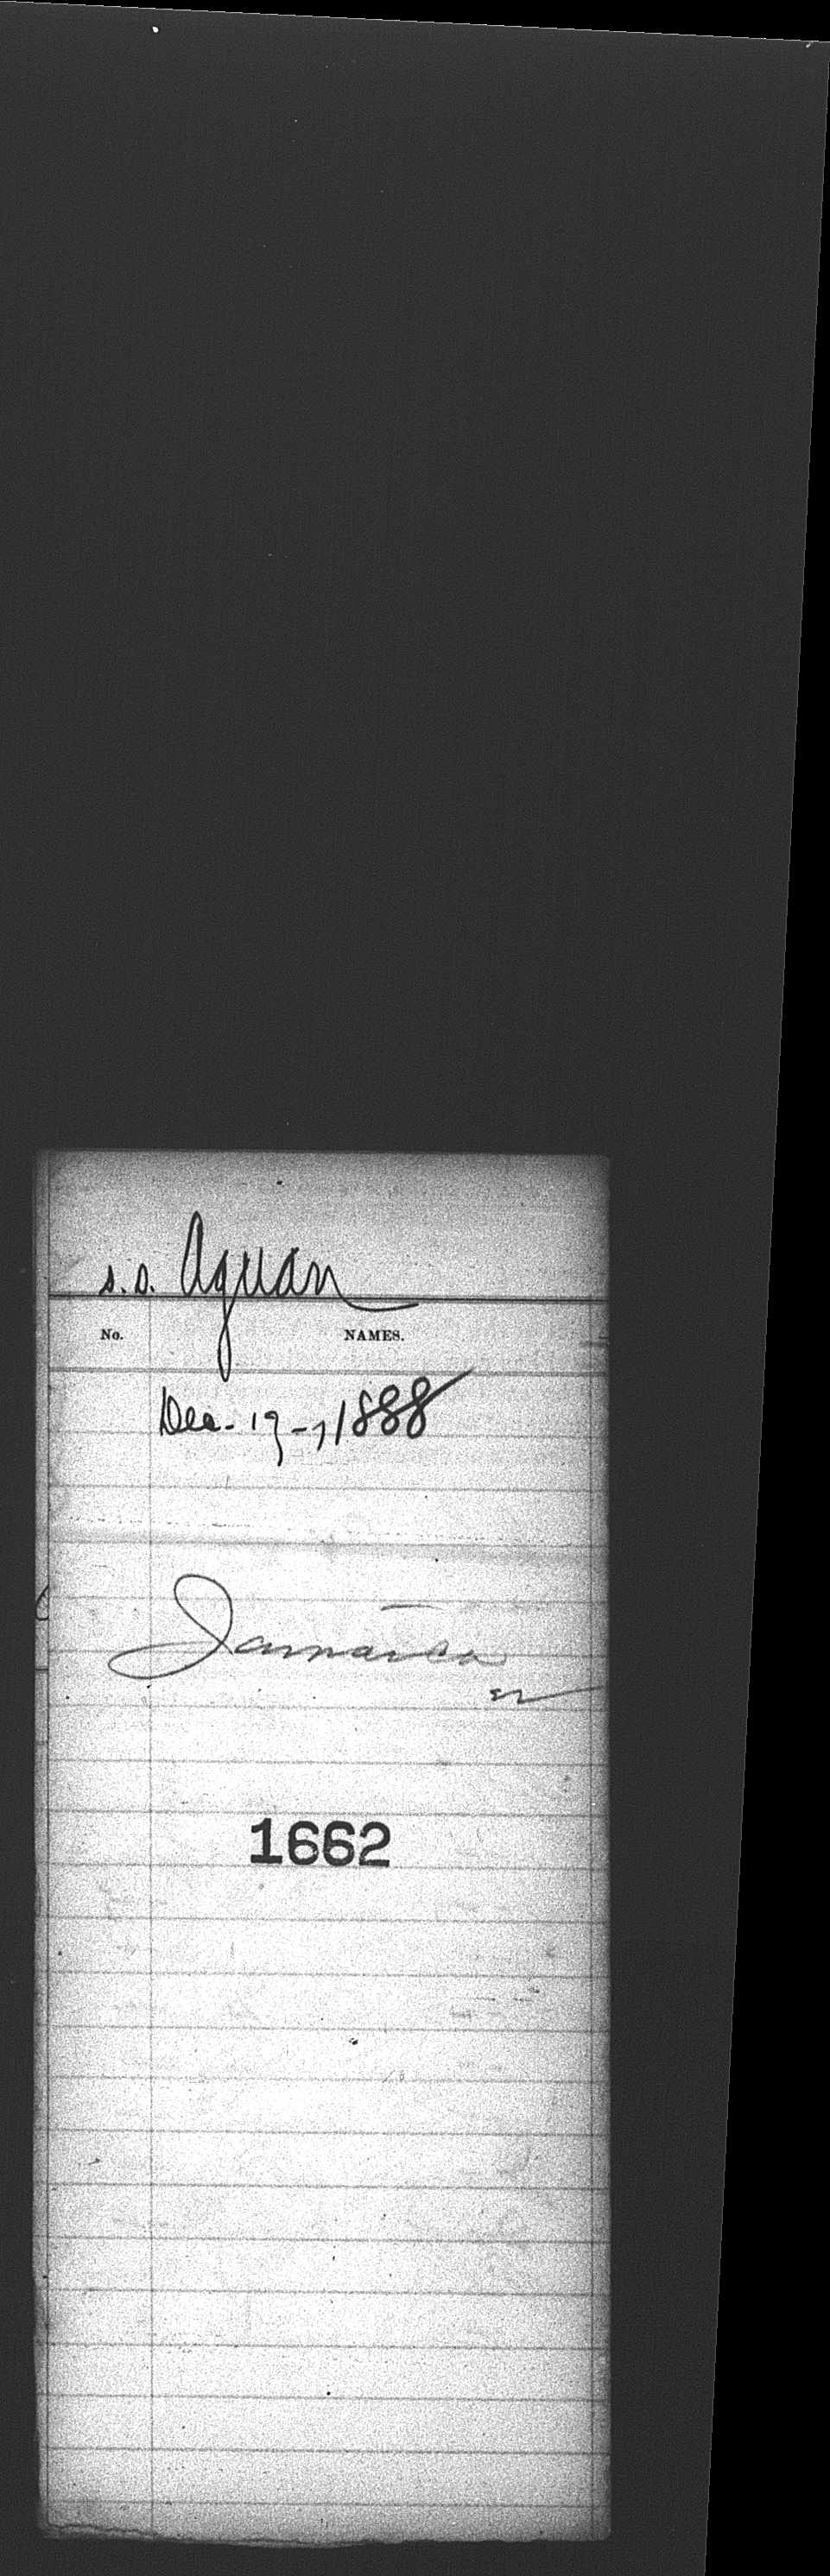 s.s. Aguan
No. NAMES.
Dec. 19-, 1888
Jamaica
1662